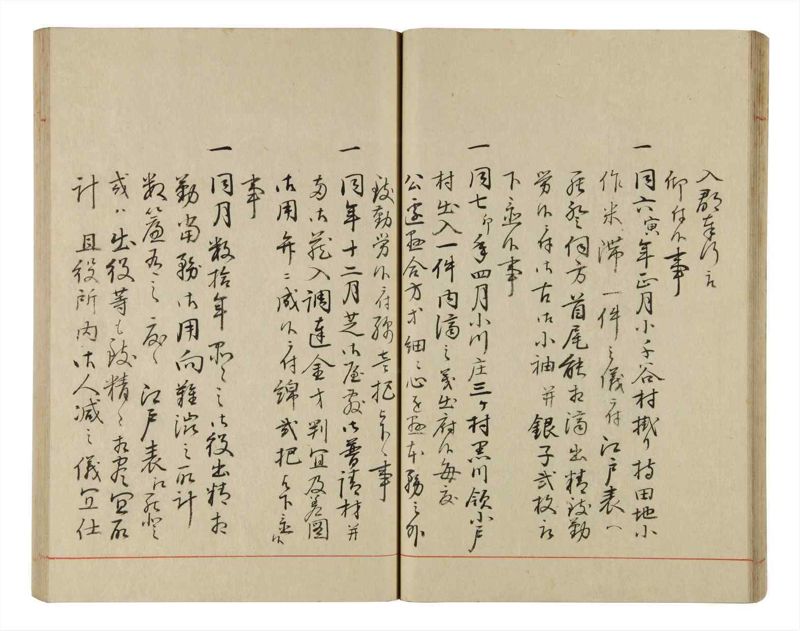 入郡奉行江
仰付候事
一 同六寅年正月小千谷村掛り持田地小
作米滞一件之儀ニ付江戸表へ
罷登伺方首尾能相済出精致勤
労候ニ付御古御小袖并銀子弐枚被
下置候事
一 同七卯年四月小川庄三ヶ村黒川領小戸
村出入一件内済之義出府候毎度
公辺懸合方等細々心を懸本務之外
致勤労候ニ付綿壱把被下候事
一 同年十二月芝御屋敷御普請材并
御蔵入調達金等判宜及差図
御用弁ニ成候ニ付綿弐把被下置候
事
一 同月数拾年之御役出精相
勤当務御用向難渋之取計
数簾有之度々江戸表江罷登
或ハ出役等も致精々相尽宜取
計且役所内御人減之儀宜仕